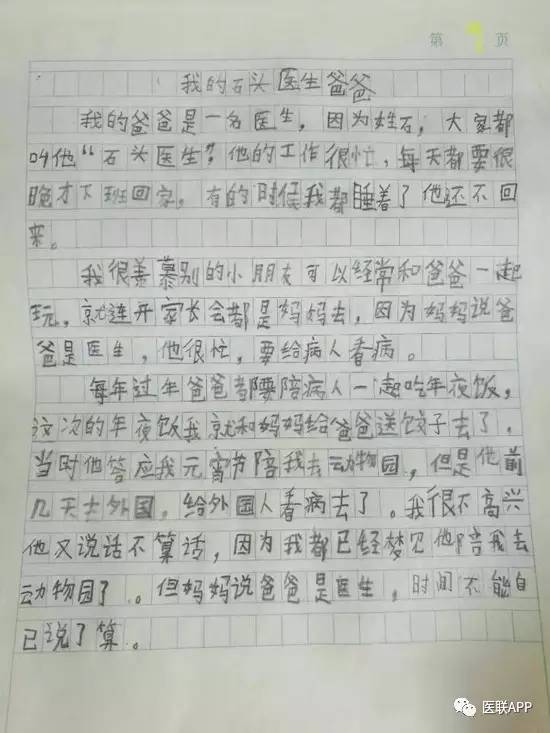 第 1 页
我的石头医生爸爸
我的爸爸是一名医生，因为姓石，大家都
叫他“石头医生”。他的工作很忙，每天都要很
晚才下班回家，有的时候我都睡着了他还不回
来。
我很羡慕别的小朋友可以经常和爸爸一起
玩，就连开家长会都是妈妈去，因为妈妈说爸
爸是医生，他很忙，要给病人看病。
每年过年爸爸都要陪病人一起吃年夜饭，
这次的年夜饭我就和妈妈给爸爸送饺子去了，
当时他答应我元宵节陪我去动物园，但是他前
几天去外国，给外国人看病去了。我很不高兴
他又说话不算话，因为我都已经梦见他陪我去
动物园了。但妈妈说爸爸是医生，时间不能自
己说了算。
医联APP